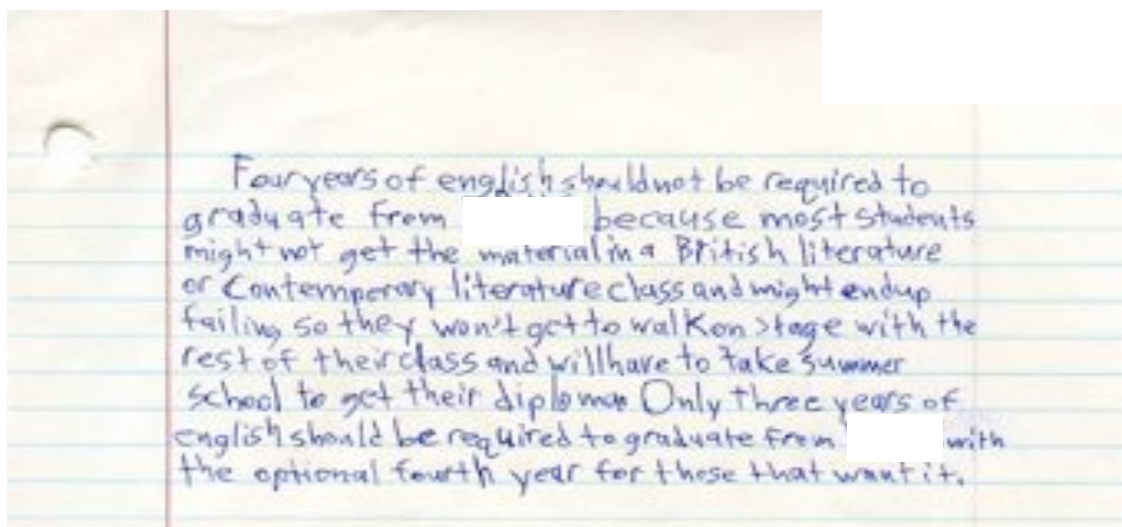 Four years of english should not be required to
graduate from because most students
might not get the material in a British literature
or Contemporary literature class and might end up
failing so they won't get to walk on stage with the
rest of their class and will have to take summer
school to get their diploma Only three years of
english should be required to graduate from with
the optional fourth year for those that want it.